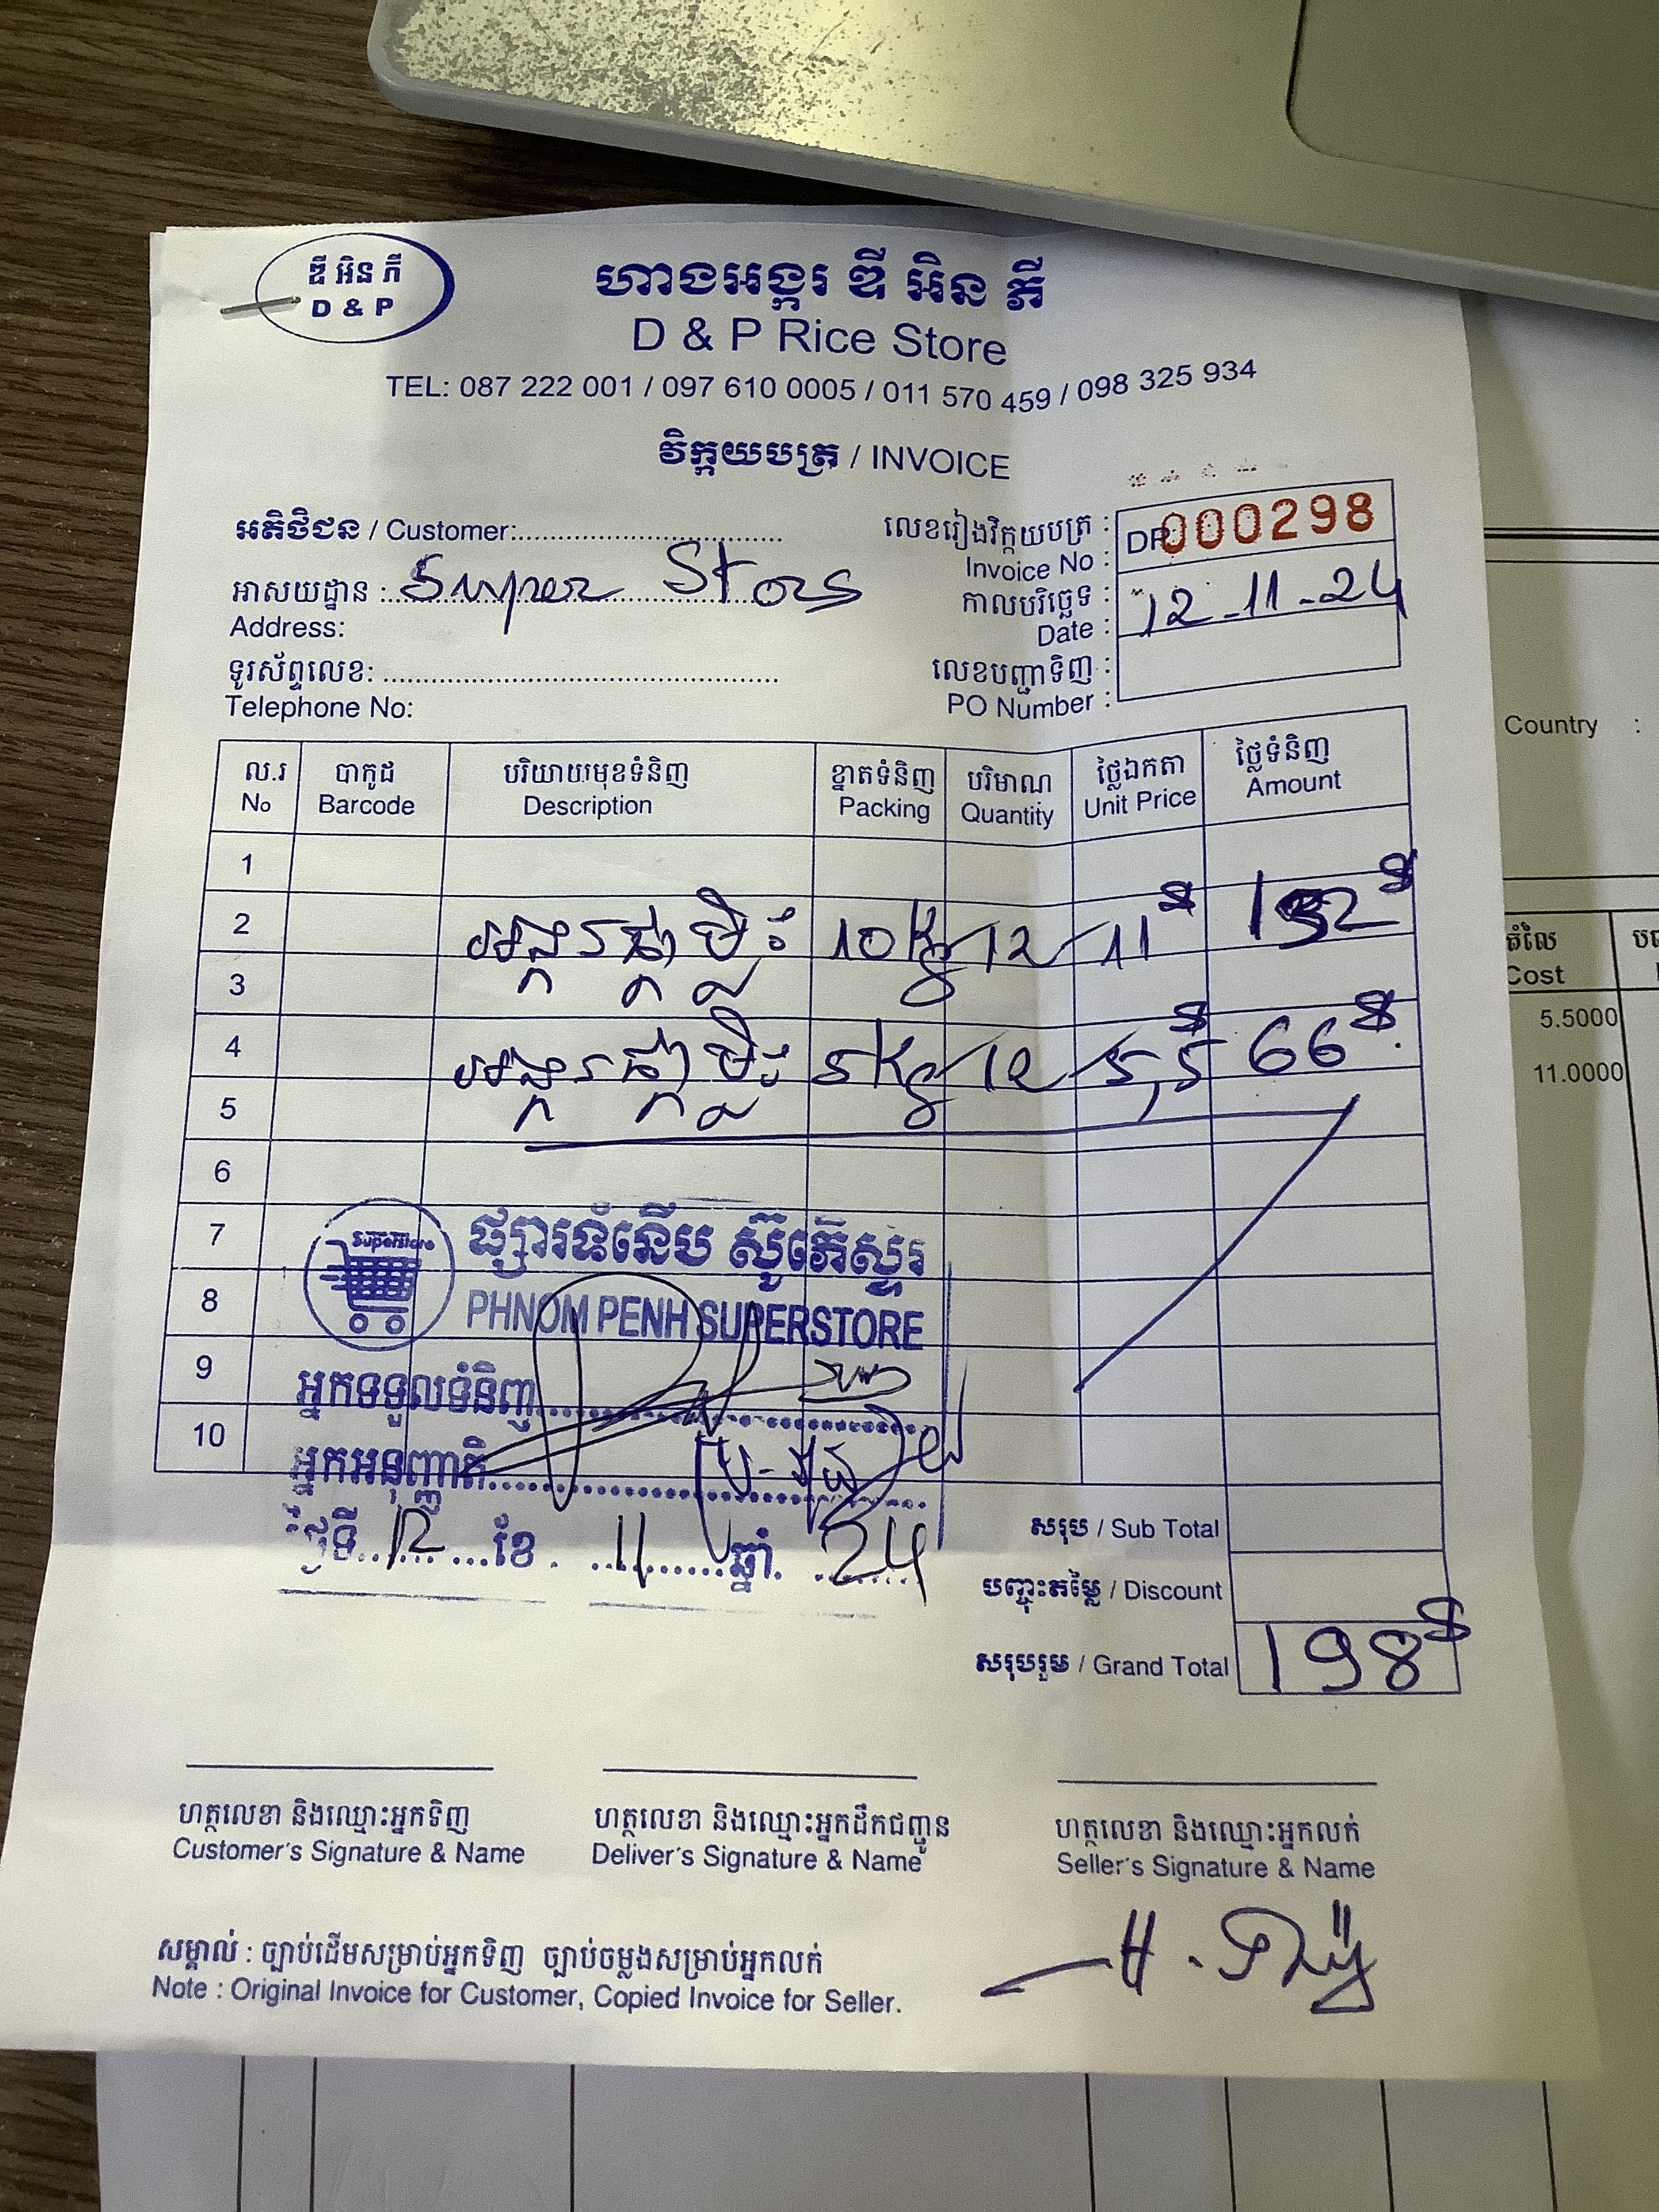 ឌី អិន ភី
D & P
ហាងអង្ករ ឌី អិន ភី
D & P Rice Store
TEL: 087 222 001 / 097 610 0005 / 011 570 459 / 098 325 934
វិក្កយបត្រ / INVOICE
អតិថិជន / Customer:
Super Store
អាសយដ្ឋាន :
Address:
ទូរស័ព្ទលេខ:
Telephone No:
លេខរៀងវិក្កយបត្រ :
Invoice No :
DP 000298
កាលបរិច្ឆេទ :
Date :
12-11-24
លេខបញ្ជាទិញ :
PO Number :
ល.រ បាកូដ បរិយាយមុខទំនិញ ខ្នាតទំនិញ បរិមាណ ថ្លៃឯកតា ថ្លៃទំនិញ
No Barcode Description Packing Quantity Unit Price Amount
1
2 អង្ករផ្កាម្លិះ 10kg 12 11$ 132$
3
4 អង្ករផ្កាម្លិះ 5kg 12 5,5$ 66$
5
6
7
8
9
10
Superstore
ផ្សារទំនើប ស៊ូភើស្ទរ
PHNOM PENH SUPERSTORE
អ្នកទទួលទំនិញ
អ្នកអនុញ្ញាតិ
ថ្ងៃទី 12 ខែ 11 ឆ្នាំ 24
សរុប / Sub Total
បញ្ចុះតម្លៃ / Discount
សរុបរួម / Grand Total 198$
ហត្ថលេខា និងឈ្មោះអ្នកទិញ
Customer's Signature & Name
ហត្ថលេខា និងឈ្មោះអ្នកដឹកជញ្ជូន
Deliver's Signature & Name
ហត្ថលេខា និងឈ្មោះអ្នកលក់
Seller's Signature & Name
សម្គាល់ : ច្បាប់ដើមសម្រាប់អ្នកទិញ ច្បាប់ចម្លងសម្រាប់អ្នកលក់
Note : Original Invoice for Customer, Copied Invoice for Seller.
Country :
តំលៃ
Cost
5.5000
11.0000